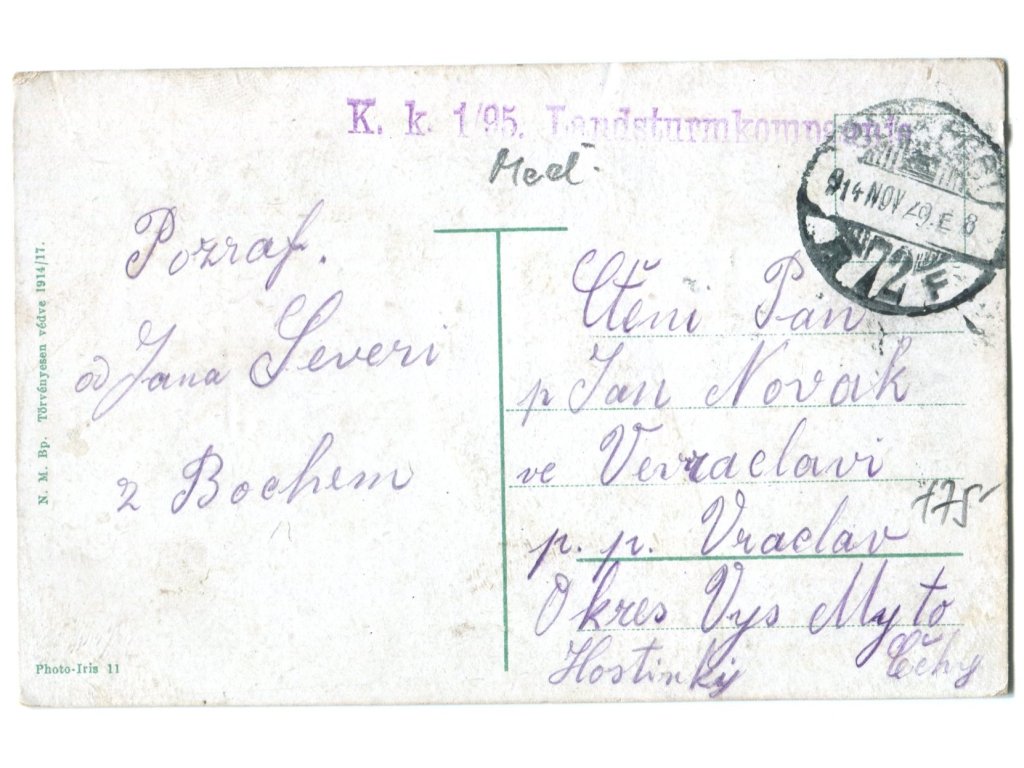 K. k. 1/95. Landsturmkompanie
Pozraf.
od Jana Severi
z Bochem
Ctěni Pan
p Jan Novak
ve Vevraclavi
p. p. Vraclav
Okres Vys Myto
Hostinky Čehy
175
914 NOV 29. E 8
72 F
N. M. Bp. Törvényesen védve 1914/17.
Photo-Iris 11